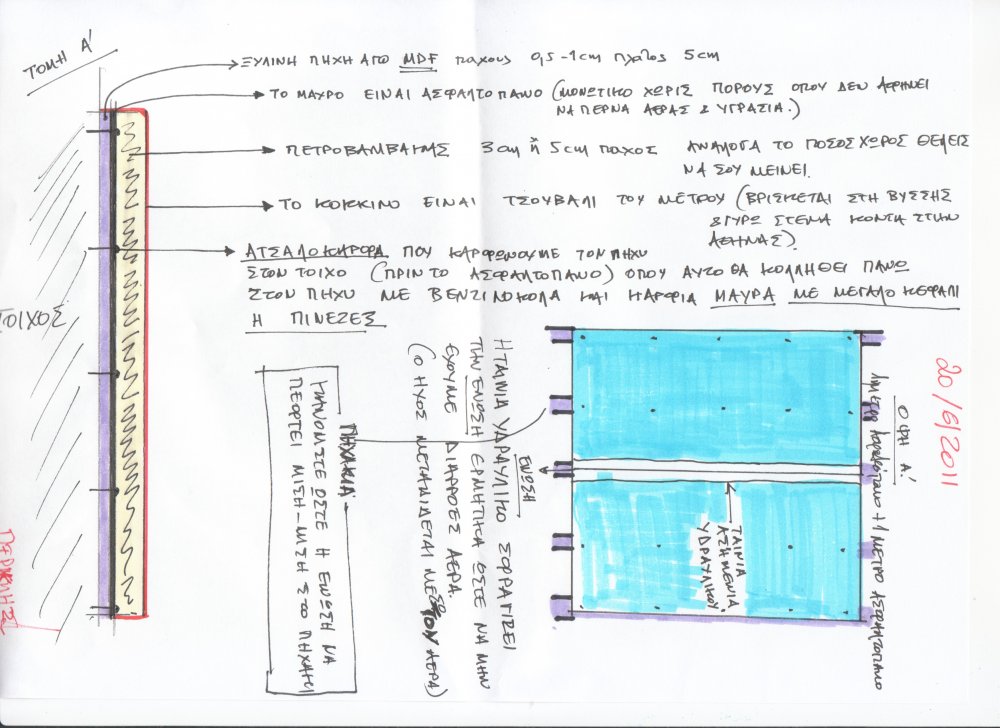 ΤΟΜΗ Α'
ΞΥΛΙΝΗ ΠΗΧΗ ΑΠΟ MDF παχους 0,5-1cm πλατος 5cm
ΤΟ ΜΑΥΡΟ ΕΙΝΑΙ ΑΣΦΑΛΤΟΠΑΝΟ (ΜΟΝΩΤΙΚΟ ΧΩΡΙΣ ΠΟΡΟΥΣ ΟΠΟΥ ΔΕΝ ΑΦΗΝΕΙ
ΝΑ ΠΕΡΝΑ ΑΕΡΑΣ & ΥΓΡΑΣΙΑ.)
ΠΕΤΡΟΒΑΜΒΑΚΑΣ 3cm ή 5cm παχος ΑΝΑΛΟΓΑ ΤΟ ΠΟΣΟΣ ΧΩΡΟΣ ΘΕΛΕΙΣ
ΝΑ ΣΟΥ ΜΕΙΝΕΙ.
ΤΟ ΚΟΚΚΙΝΟ ΕΙΝΑΙ ΤΣΟΥΒΑΛΙ ΤΟΥ ΜΕΤΡΟΥ (ΒΡΙΣΚΕΤΑΙ ΣΤΗ ΒΥΣΣΗΣ
& ΓΥΡΩ ΣΤΕΝΑ ΚΟΝΤΑ ΣΤΗΝ
ΑΘΗΝΑΣ)
ΑΤΣΑΛΟΚΑΡΦΑ ΠΟΥ ΚΑΡΦΩΝΟΥΜΕ ΤΟΝ ΠΗΧΥ
ΣΤΟΝ ΤΟΙΧΟ (ΠΡΙΝ ΤΟ ΑΣΦΑΛΤΟΠΑΝΟ) ΟΠΟΥ ΑΥΤΟ ΘΑ ΚΟΛΛΗΘΕΙ ΠΑΝΩ
ΣΤΟΝ ΠΗΧΥ ΜΕ ΒΕΝΖΙΝΟΚΟΛΑ ΚΑΙ ΚΑΡΦΙΑ ΜΑΥΡΑ ΜΕ ΜΕΓΑΛΟ ΚΕΦΑΛΙ
Η ΠΙΝΕΖΕΣ
ΤΟΙΧΟΣ
ΠΕΡΙΚΛΗΣ
20/6/2011
ΟΨΗ Α'.
1 ΜΕΤΡΟ ΑΣΦΑΛΤΟΠΑΝΟ
ΤΑΙΝΙΑ
ΑΣΗΜΕΝΙΑ
ΥΔΡΑΥΛΙΚΟΥ.
ΕΝΩΣΗ
Η ΤΑΙΝΙΑ ΥΔΡΑΥΛΙΚΟΥ ΣΦΡΑΓΙΖΕΙ
ΤΗΝ ΕΝΩΣΗ ΕΡΜΗΤΙΚΑ ΩΣΤΕ ΝΑ ΜΗΝ
ΕΧΟΥΜΕ ΔΙΑΡΡΟΕΣ ΑΕΡΑ.
(Ο ΗΧΟΣ ΜΕΤΑΔΙΔΕΤΑΙ ΜΕΣΩ ΤΟΝ ΑΕΡΑ)
ΠΗΧΑΚΙΑ
ΚΑΝΟΝΙΣΤΕ ΩΣΤΕ Η ΕΝΩΣΗ ΝΑ
ΠΕΦΤΕΙ ΜΙΣΗ-ΜΙΣΗ ΣΤΟ ΠΗΧΑΚΙ